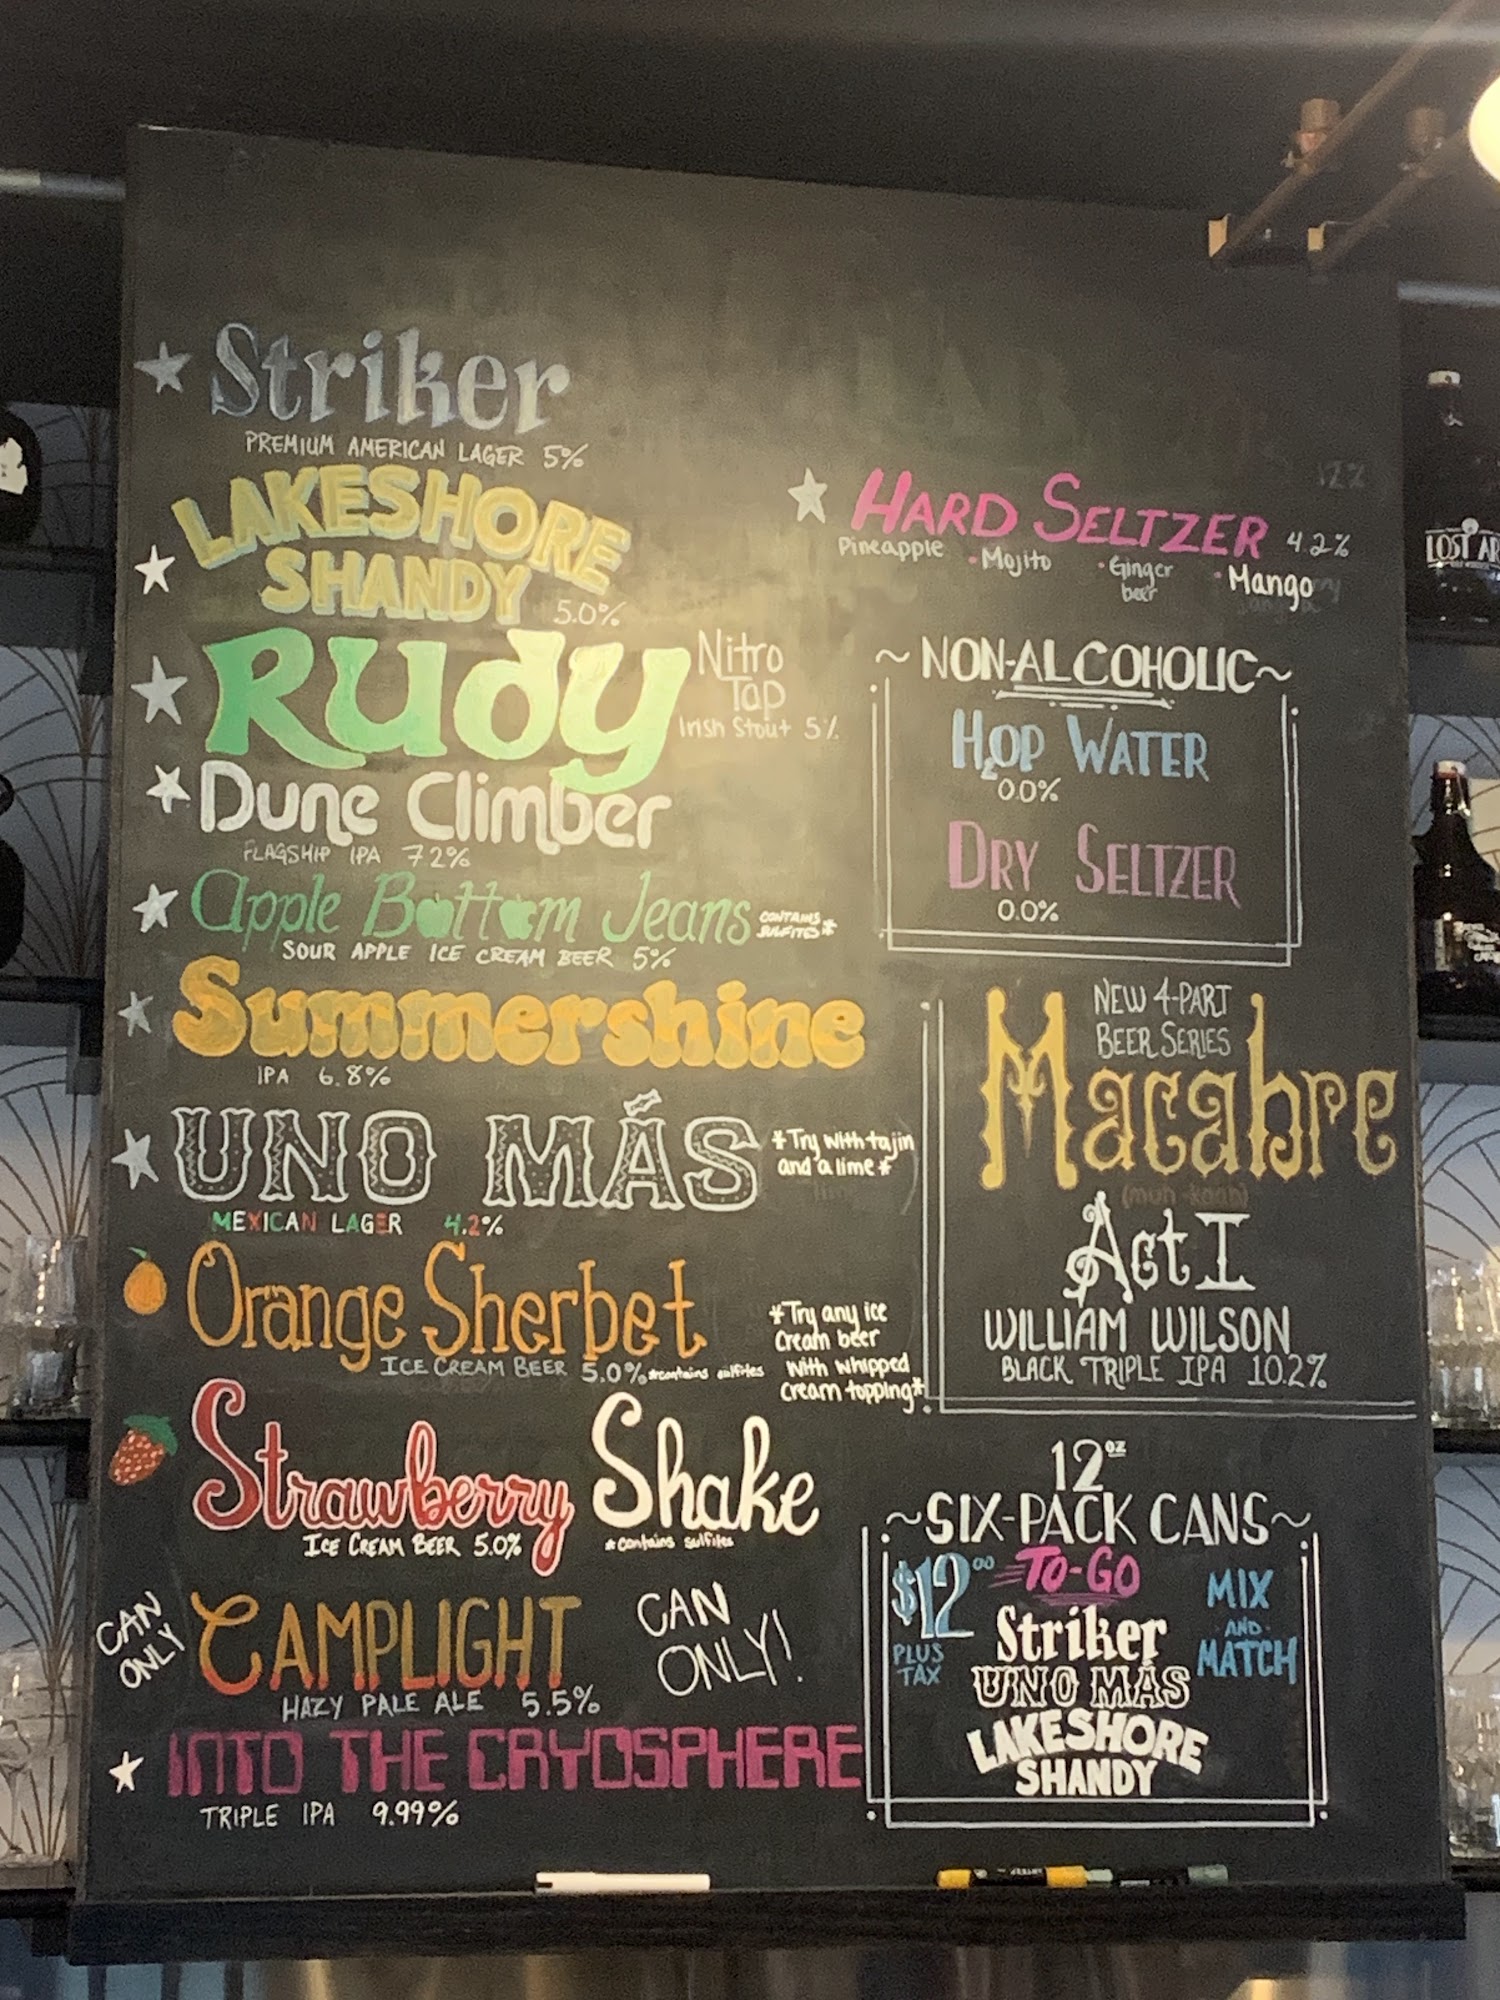 Striker
PREMIUM AMERICAN LAGER 5%
LAKESHORE
SHANDY 5.0%
Rudy
Nitro
Tap
Irish Stout 5%
Dune Climber
FLAGSHIP IPA 7.2%
Apple Bottom Jeans
CONTAINS
SULFITES*
SOUR APPLE ICE CREAM BEER 5%
Summershine
IPA 6.8%
UNO MÁS
*Try with tajin
and a lime*
MEXICAN LAGER 4.2%
Orange Sherbet
ICE CREAM BEER 5.0% *contains sulfites
*Try any ice
cream beer
with whipped
cream topping*
Strawberry Shake
ICE CREAM BEER 5.0% *contains sulfites
CAN
ONLY
CAMPLIGHT
CAN
ONLY!
HAZY PALE ALE 5.5%
INTO THE CRYOSPHERE
TRIPLE IPA 9.99%
12%
HARD SELTZER 4.2%
Pineapple · Mojito · Ginger
beer · Mango
~NON-ALCOHOLIC~
H2OP WATER
0.0%
DRY SELTZER
0.0%
NEW 4-PART
BEER SERIES
Macabre
(muh-kaab)
Act I
WILLIAM WILSON
BLACK TRIPLE IPA 10.2%
12oz
~SIX-PACK CANS~
$12.00
PLUS
TAX
TO-GO
MIX
AND
MATCH
Striker
UNO MÁS
LAKESHORE
SHANDY
LOST AR